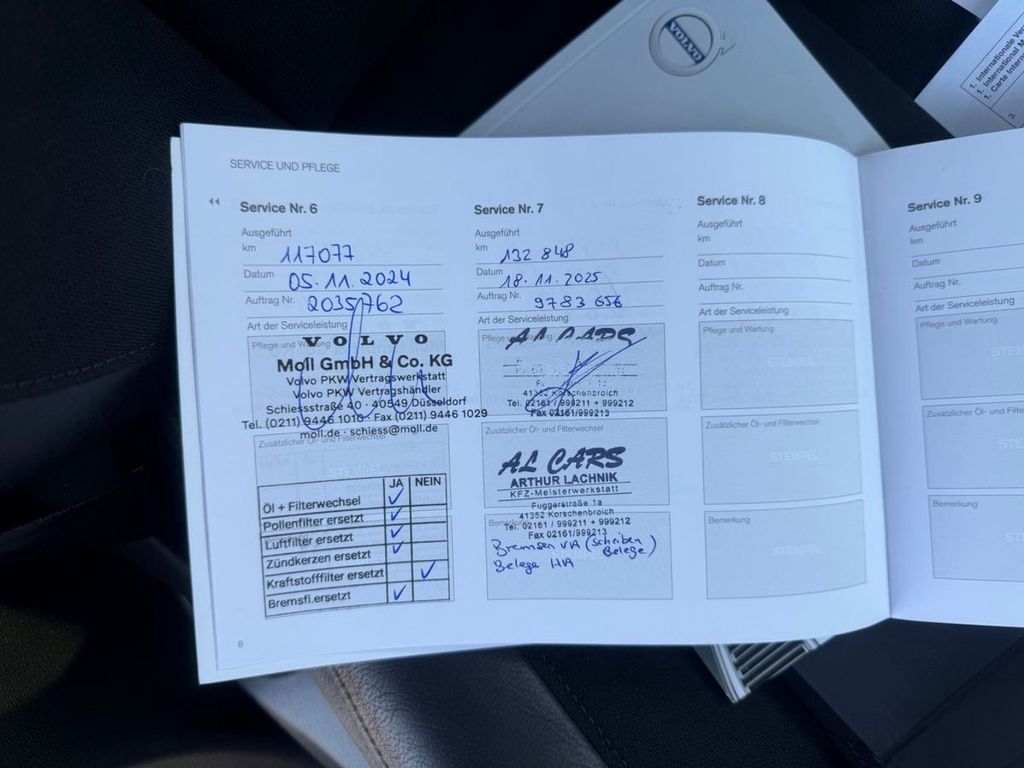 VOLVO
1. Internationale Ve
1. International M
1. Carte Intern
3.
SERVICE UND PFLEGE
Service Nr. 6
Ausgeführt
km 117077
Datum 05.11.2024
Auftrag Nr. 2035762
Art der Serviceleistung
Pflege und Wartung
VOLVO
Moll GmbH & Co. KG
Volvo PKW Vertragswerkstatt
Volvo PKW Vertragshändler
Schiessstraße 40 · 40549 Düsseldorf
Tel. (0211) 9446 1010 · Fax (0211) 9446 1029
moll.de · schiess@moll.de
Zusätzlicher Öl- und Filterwechsel
STEMPEL
JA NEIN
Öl + Filterwechsel ✓
Pollenfilter ersetzt ✓
Luftfilter ersetzt ✓
Zündkerzen ersetzt ✓
Kraftstofffilter ersetzt ✓
Bremsfl.ersetzt ✓
8
Service Nr. 7
Ausgeführt
km 132 848
Datum 18.11.2025
Auftrag Nr. 9783 656
Art der Serviceleistung
AL CARS
41352 Korschenbroich
Tel. 02161 / 999211 + 999212
Fax 02161/999213
Zusätzlicher Öl- und Filterwechsel
AL CARS
ARTHUR LACHNIK
KFZ-Meisterwerkstatt
Fuggerstraße 1a
41352 Korschenbroich
Tel. 02161 / 999211 + 999212
Fax 02161/999213
Bremsen VA (Scheiben
Belege)
Belege HA
Service Nr. 8
Ausgeführt
km
Datum
Auftrag Nr.
Art der Serviceleistung
Pflege und Wartung
STEMPEL
Zusätzlicher Öl- und Filterwechsel
STEMPEL
Bemerkung
STEMPEL
Service Nr. 9
Ausgeführt
km
Datum
Auftrag Nr.
Art der Serviceleistung
Pflege und Wartung
STEM
Zusätzlicher Öl- und Filte
ST
Bemerkung
ST